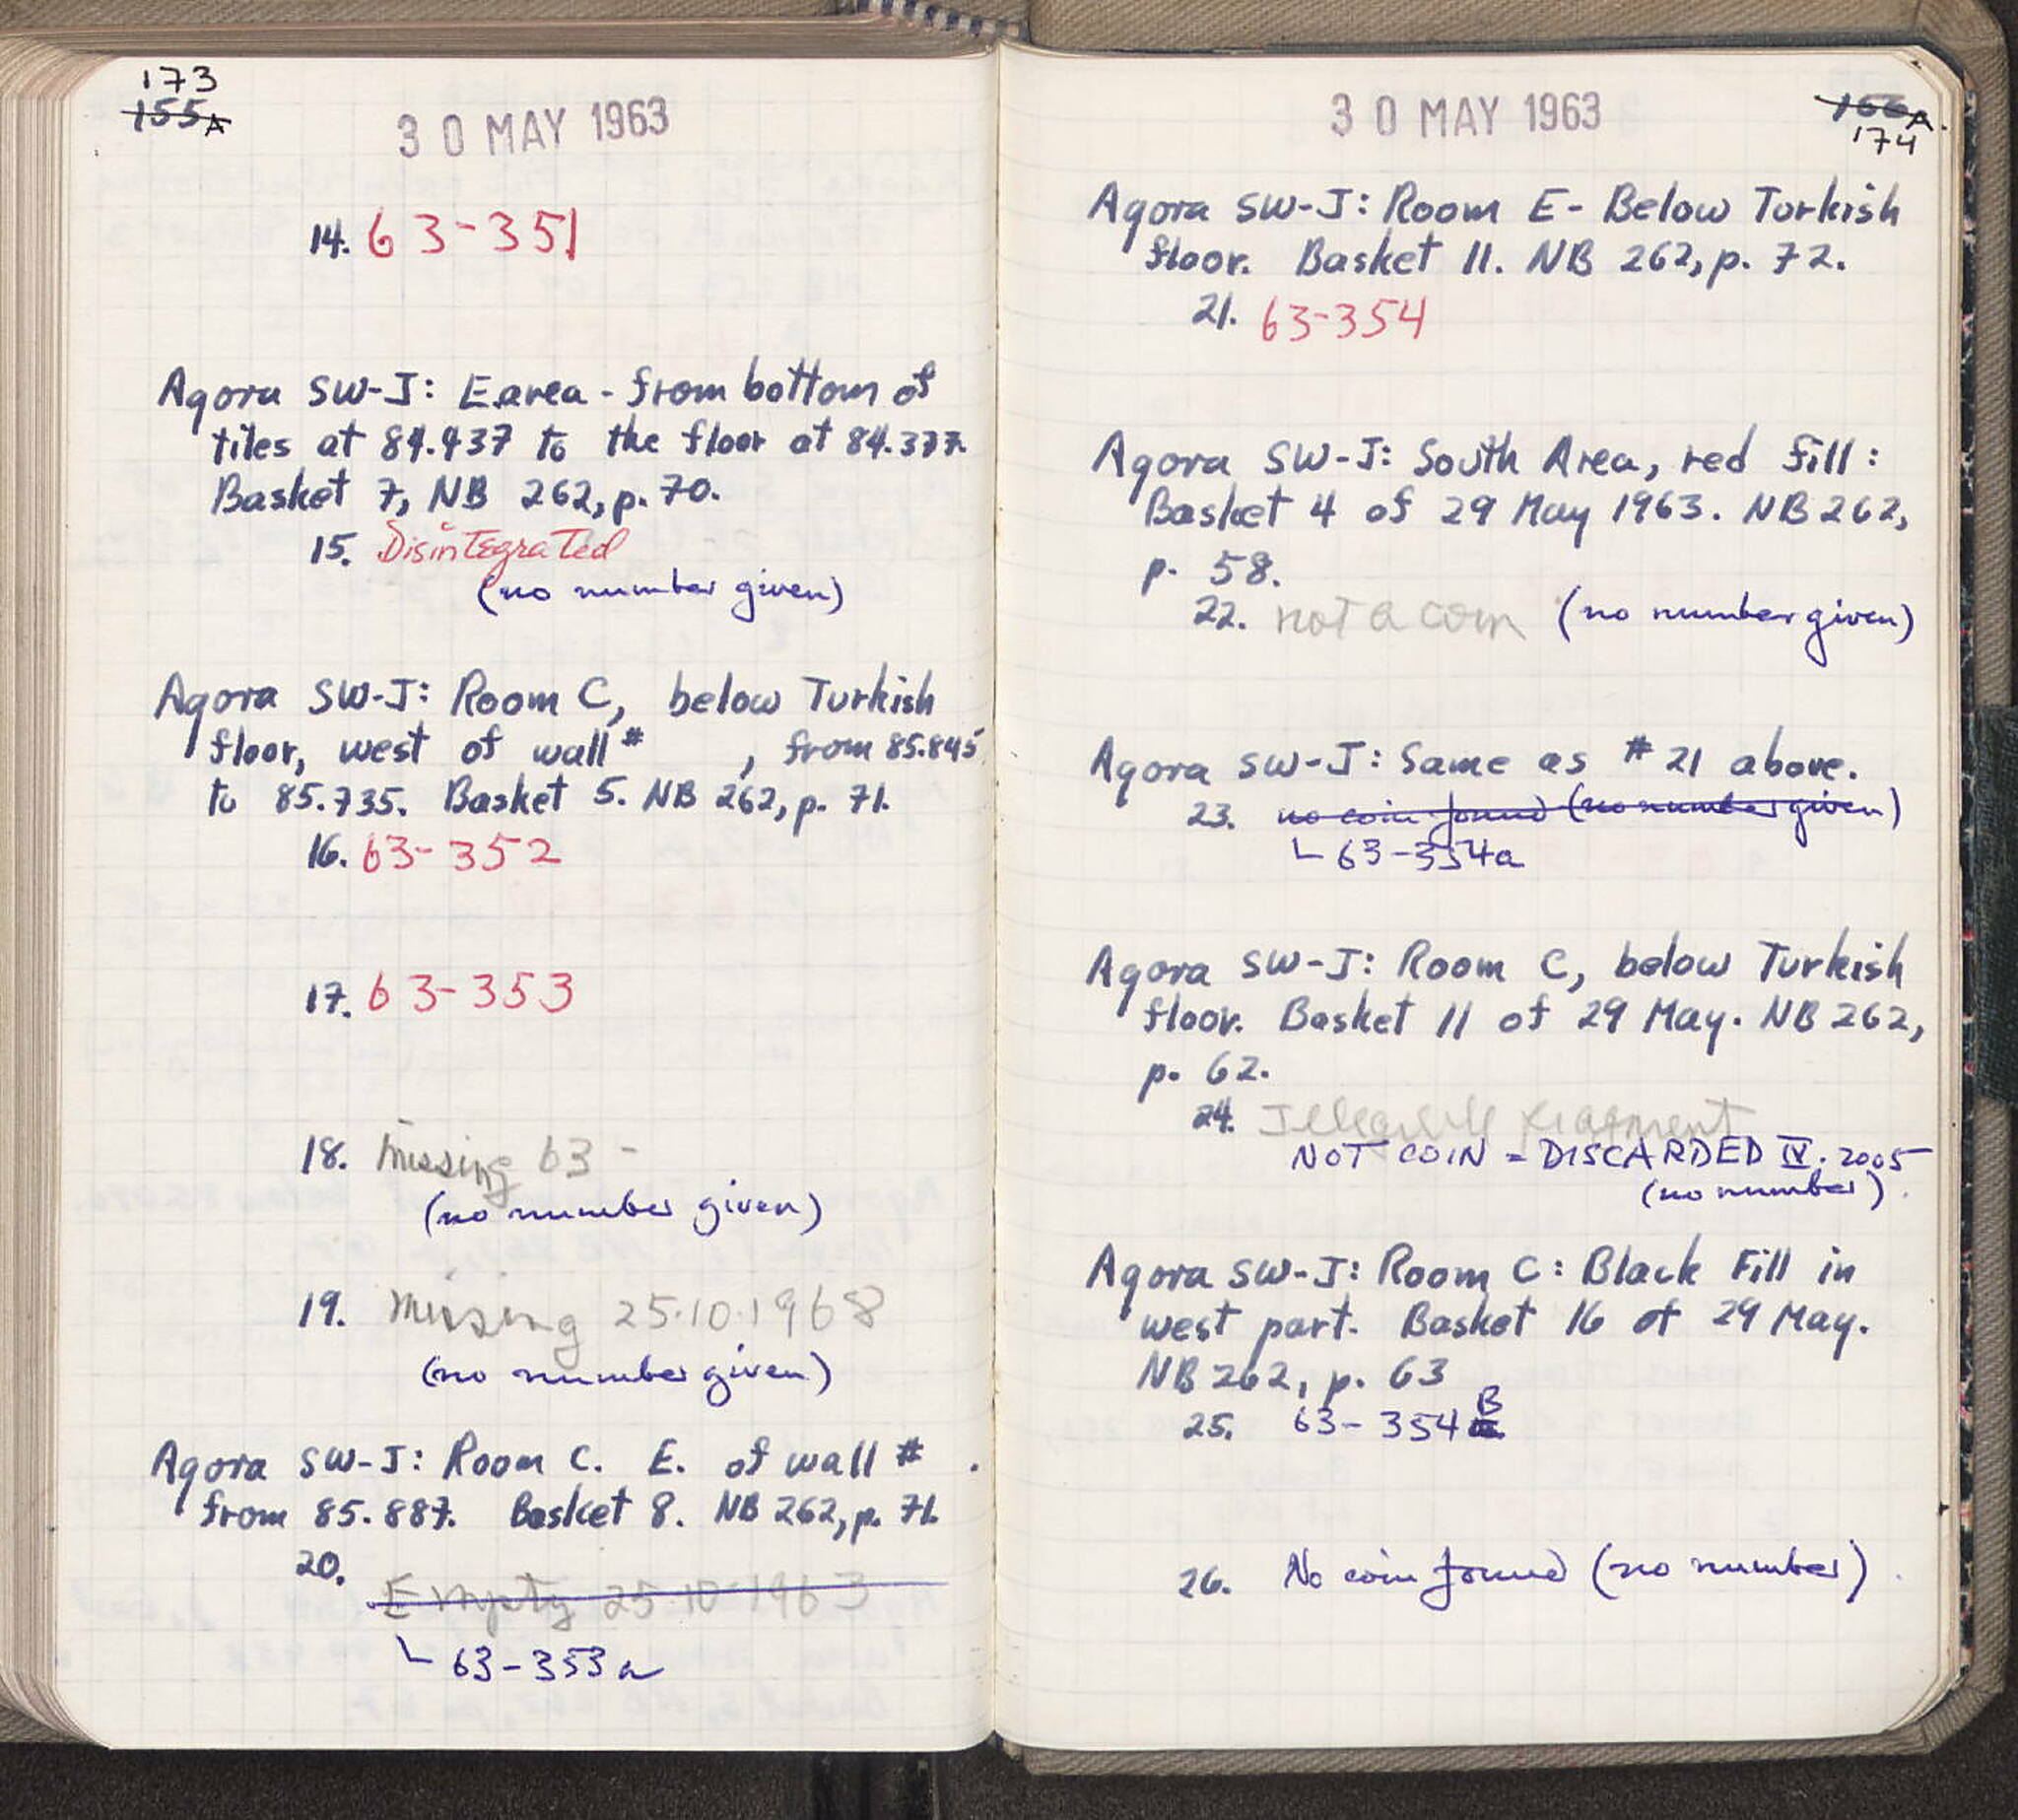 173
155A
30 MAY 1963
14. 63-351
Agora SW-J: E area - from bottom of
tiles at 84.437 to the floor at 84.377.
Basket 7, NB 262, p. 70.
15. Disintegrated
(no number given)
Agora SW-J: Room C, below Turkish
floor, west of wall # , from 85.845
to 85.735. Basket 5. NB 262, p. 71.
16. 63-352
17. 63-353
18. missing 63-
(no number given)
19. missing 25.10.1968
(no number given)
Agora SW-J: Room C. E. of wall # .
from 85.887. Basket 8. NB 262, p. 71.
20.
Empty 25.10.1963
63-353a
30 MAY 1963
166A.
174
Agora SW-J: Room E- Below Turkish
floor. Basket 11. NB 262, p. 72.
21. 63-354
Agora SW-J: South Area, red fill:
Basket 4 of 29 May 1963. NB 262,
p. 58.
22. not a coin (no number given)
Agora SW-J: Same as #21 above.
23. no coin found (no number given)
63-354a
Agora SW-J: Room C, below Turkish
floor. Basket 11 of 29 May. NB 262,
p. 62.
24. Illegible fragment
NOT COIN = DISCARDED IV. 2005
(no number)
Agora SW-J: Room C: Black Fill in
west part. Basket 16 of 29 May.
NB 262, p. 63
25. 63-354 B
26. No coin found (no number)